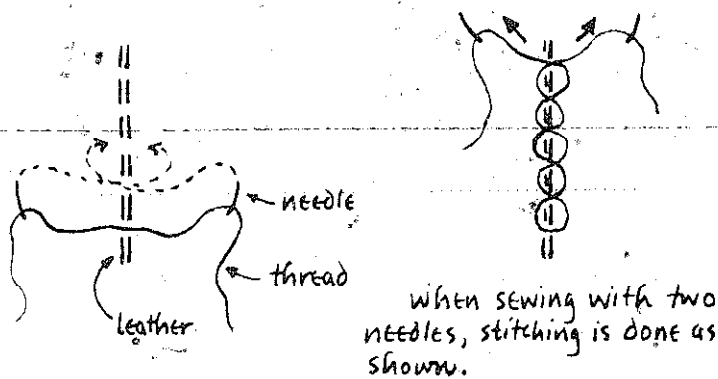 needle
thread
leather
when sewing with two
needles, stitching is done as
shown.